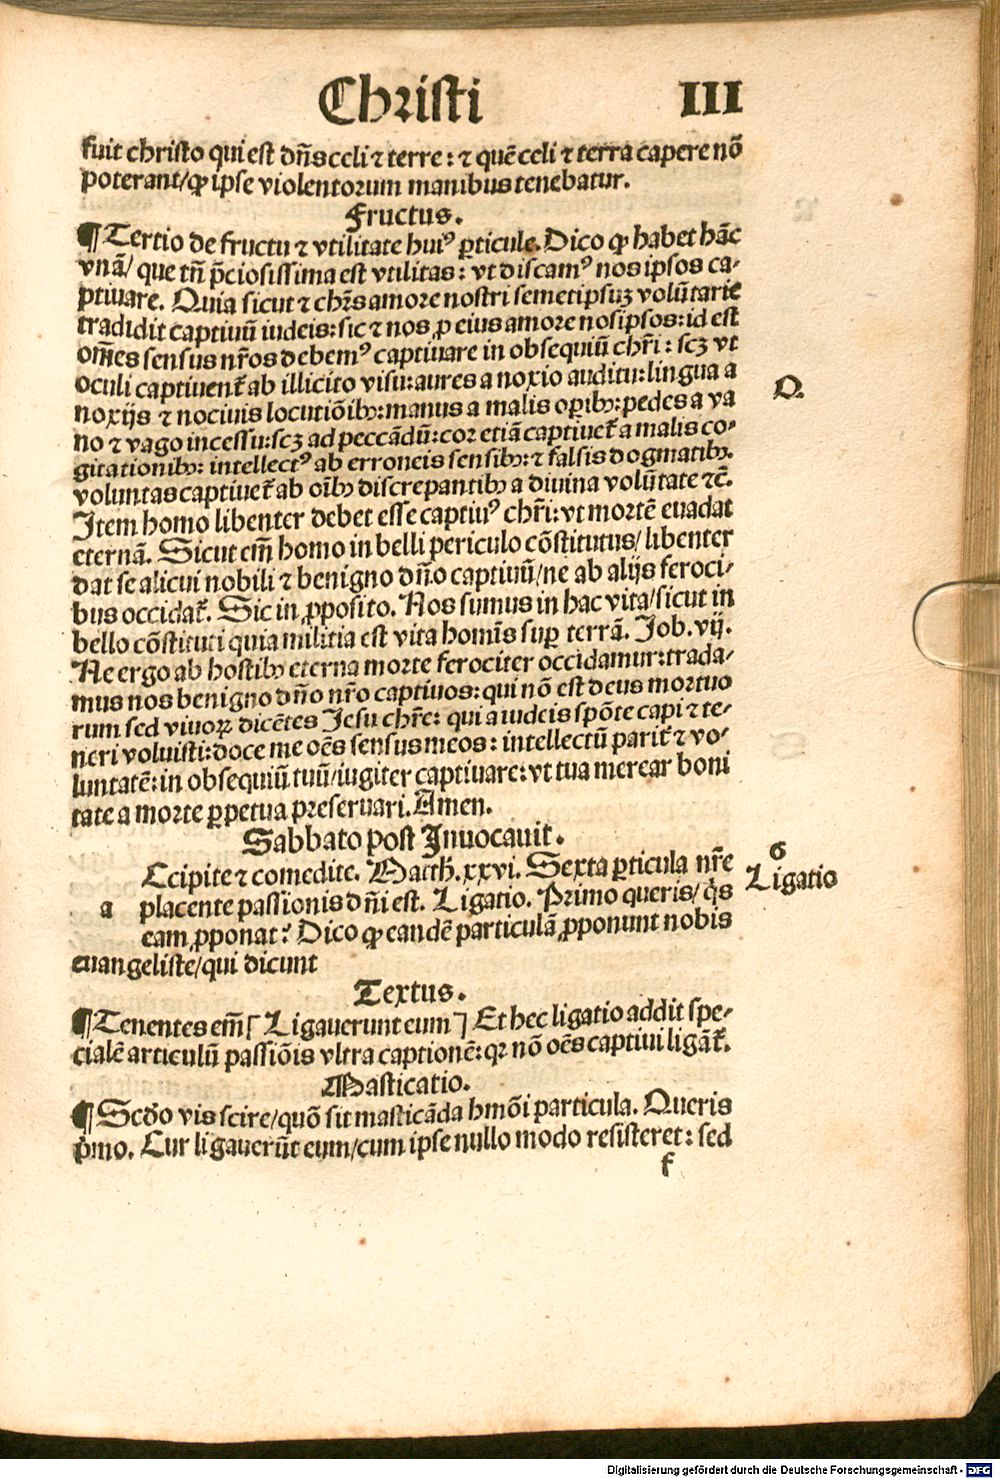 Christi III
fuit christo qui est dñs celi ⁊ terre: ⁊ quē celi ⁊ terra capere nō
poterant/ꝙ ipse violentorum manibus tenebatur.
Fructus.
¶Tertio de fructu ⁊ vtilitate huiꝰ ꝑticule. Dico ꝙ habet hāc
vnā/ que tñ p̄ciosissima est vtilitas: vt discamꝰ nos ipsos ca-
ptiuare. Quia sicut ⁊ chr̄s amore nostri semetipsuꝫ volūtarie
tradidit captiuū iudeis: sic ⁊ nos ꝓ eius amore nosipsos: id est
om̄es sensus nr̄os debemꝰ captiuare in obsequiū chr̄i: scꝫ vt
oculi captiuent᷑ ab illicito visu: aures a noxio auditu: lingua a
O.
noxijs ⁊ nociuis locutiōibꝫ: manus a malis oꝑibꝫ: pedes a va
no ⁊ vago incessu: scꝫ ad peccādū: cor etiā captiuet᷑ a malis co-
gitationibꝫ: intellectꝰ ab erroneis sensibꝫ: ⁊ falsis dogmatibꝫ.
voluntas captiuet᷑ ab oībꝫ discrepantibꝫ a diuina volūtate ⁊c̄.
Item homo libenter debet esse captiuꝰ chr̄i: vt mortē euadat
eternā. Sicut em̄ homo in belli periculo cōstitutus/ libenter
dat se alicui nobili ⁊ benigno dño captiuū/ne ab alijs feroci-
bus occidat᷑. Sic in ꝓposito. Nos sumus in hac vita/sicut in
bello cōstituti quia militia est vita homīs suꝑ terrā. Job. vij.
Ne ergo ab hostibꝫ eterna morte ferociter occidamur: trada-
mus nos benigno dño nr̄o captiuos: qui nō est deus mortuo
rum sed viuoꝝ dicētes Jesu chr̄e: qui a iudeis spōte capi ⁊ te-
neri voluisti: doce me oēs sensus meos: intellectū parit᷑ ⁊ vo-
luntatē: in obsequiū tuū/iugiter captiuare: vt tua merear boni
tate a morte ꝑpetua preseruari. Amen.
Sabbato post Inuocauit.
a Ccipite ⁊ comedite. Matth. xxvi. Sexta ꝑticula nr̄e
6
Ligatio
placente passionis dñi est. Ligatio. Primo queris/ qͥs
eam ꝓponat? Dico ꝙ eandē particulā ꝓponunt nobis
euangeliste/qui dicunt
Textus.
¶Tenentes em̄ [Ligauerunt eum] Et hec ligatio addit spe-
cialē articulū passiōis vltra captionē: qꝛ nō oēs captiui ligāt᷑.
Masticatio.
¶Scd̄o vis scire/quō sit masticāda hmōi particula. Queris
pͥmo. Cur ligauerūt eum/cum ipse nullo modo resisteret: sed
f
Digitalisierung gefördert durch die Deutsche Forschungsgemeinschaft - DFG